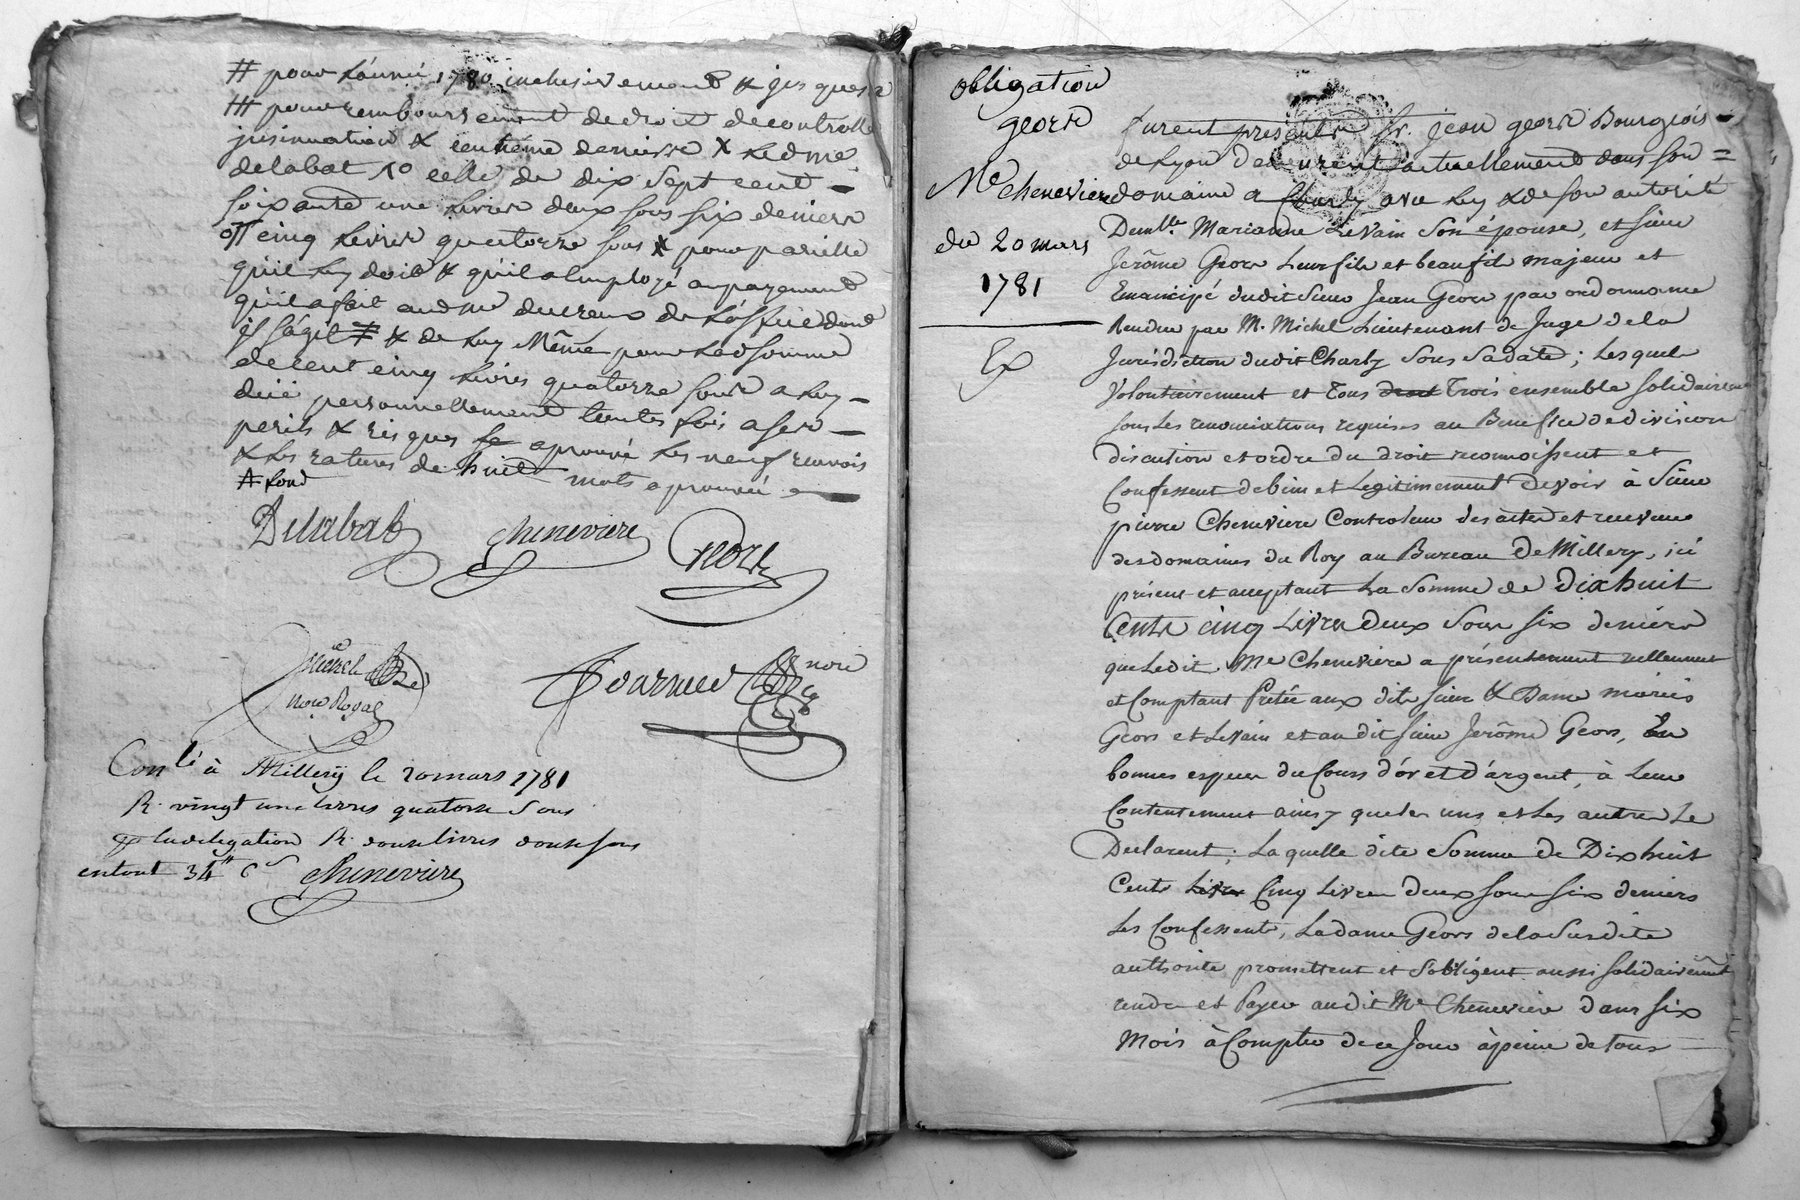 # pour L'année 1780 inclusivement & jus ques a
## pour remboursement de droit de controlle
jnsinuation & centième denier & Led me
delabat 1o celle de dix sept cent –
soixante une Livres deux sous six deniers
cinq Livres quatorze sous & pour pareille
qu'il Luy doit & qu'il a Employé au payement
qu'il a fait aud me du de L'office dont
jl s'agit # & de Luy Même pour Lad somme
de cent cinq Livres quatorze sous a Luy –
deüe personnellement toutes fois a ses –
perils & risques approuvé Les neuf renvois
& Les ratures de huit mots approuvée –
Delabat cheneviere Geors
nore Royal nore
Conlé à Millery le 20 mars 1781
R. vingt une livres quatorze Sous
& la delegation R. douze livres douze sous
en tout 34# 6s cheneviere
obligation
geors
Me cheneviere
du 20 mars
1781
Ex
furent presents Sr. jean geors Bourgeois
de Lyon demeurant actuellement dans son =
domaine a Charly avec Luy & de son autorité
Demlle. Marianne Levain Son épouse, et sieur
Jerôme Geors Leur fils et beaufils majeur et
Emancipé dudit Sieur Jean Geors par ordonnance
Rendue par M. Michel Lieutenant de Juge de la
Jurisdiction dudit Charly Sous Sa date; Lesquels
Volontairement et Tous Trois ensemble solidairement
sous Les renonciations requises au Benefice de division
discution et ordre du droit reconnoissent et
Confessent debien et Legitimement Devoir à Sieur
pierre Cheneviere Controleur des actes et receveur
des domaines du Roy au Bureau de Millery, ici
présent et acceptant La Somme de Dixhuit
Cents cinq Livres deux Sous six deniers
que Ledit Me Cheneviere a présentement reellement
et Comptant Pretée aux dits sieur & Dame mariés
Geors et Levain et au dit sieur Jerôme Geors, En
bonnes especes du Cours d'or et d'argent, à Leur
Contentement ainsy que Les uns et Les autres Le
Declarent; Laquelle dite Somme de Dixhuit
Cents Livres Cinq Livres deux sous six deniers
Les Confessents, La dame Geors de la Susdite
authorité promettent et s'obligent aussi solidairement
rendre et Payer audit Me Cheneviere dans six
Mois à Compter de ce Jour à peine de tous